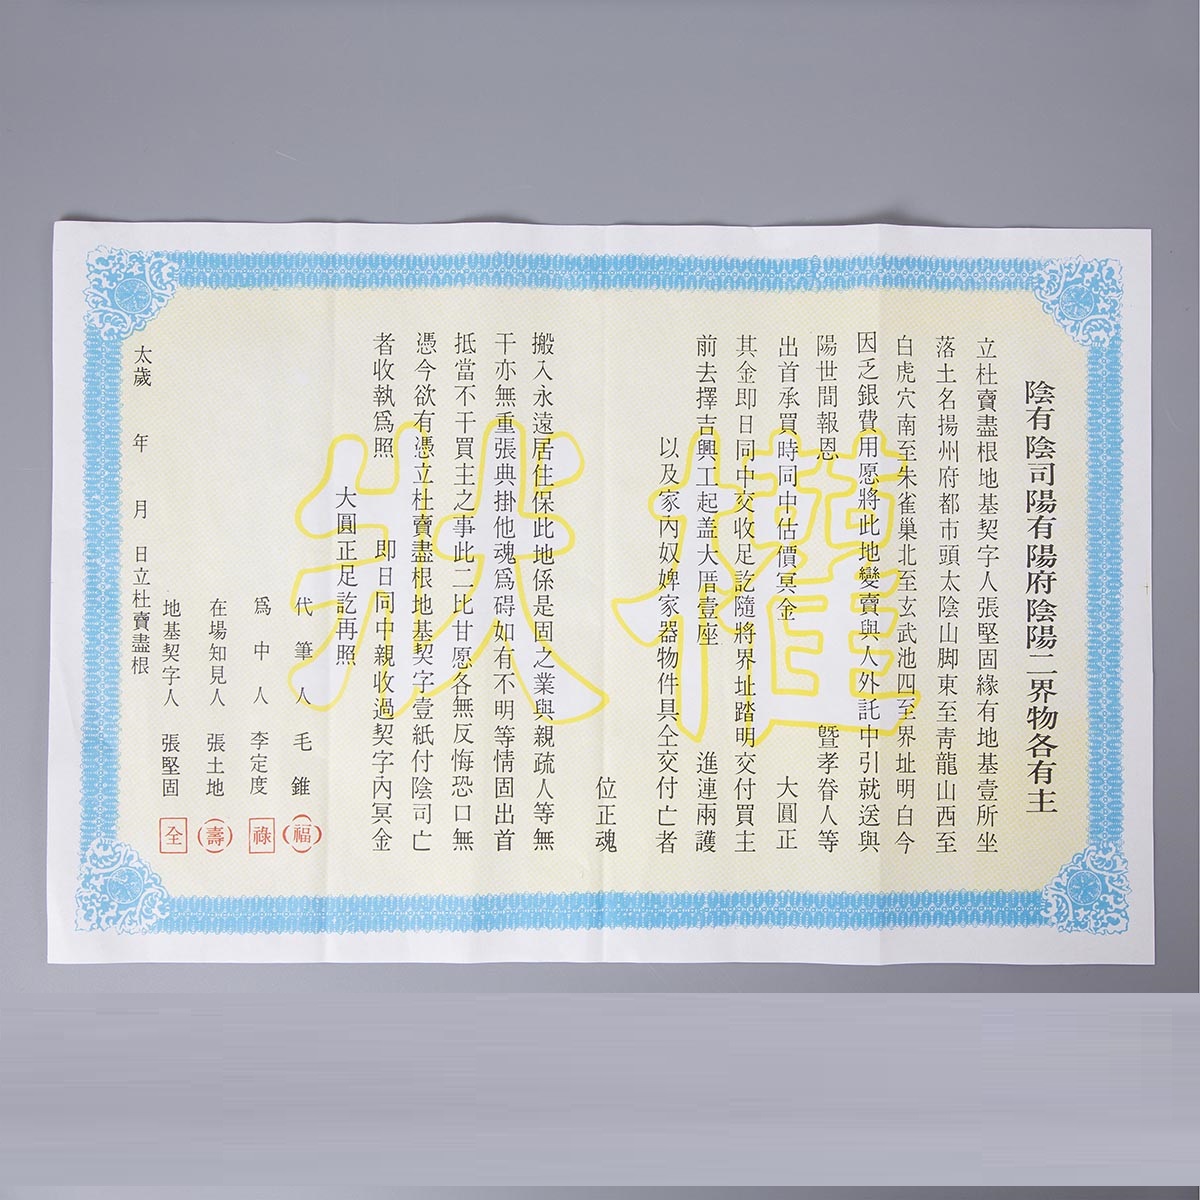 陰有陰司陽有陽府陰陽二界物各有主
立杜賣盡根地基契字人張堅固緣有地基壹所坐
落土名揚州府都市頭太陰山脚東至青龍山西至
白虎穴南至朱雀巢北至玄武池四至界址明白今
因乏銀費用愿將此地變賣與人外託中引就送與
陽世間報恩 暨孝眷人等
出首承買時同中估價冥金 大圓正
其金即日同中交收足訖隨將界址踏明交付買主
前去擇吉興工起盖大厝壹座 進連兩護
以及家內奴婢家器物件具全交付亡者
位正魂
搬入永遠居住保此地係是固之業與親疏人等無
干亦無重張典掛他魂爲碍如有不明等情固出首
抵當不干買主之事此二比甘愿各無反悔恐口無
憑今欲有憑立杜賣盡根地基契字壹紙付陰司亡
者收執爲照 即日同中親收過契字內冥金
大圓正足訖再照
代筆人 毛錐 福
爲中人 李定度 祿
在場知見人 張土地 壽
地基契字人 張堅固 全
太歲 年 月 日立杜賣盡根
權狀